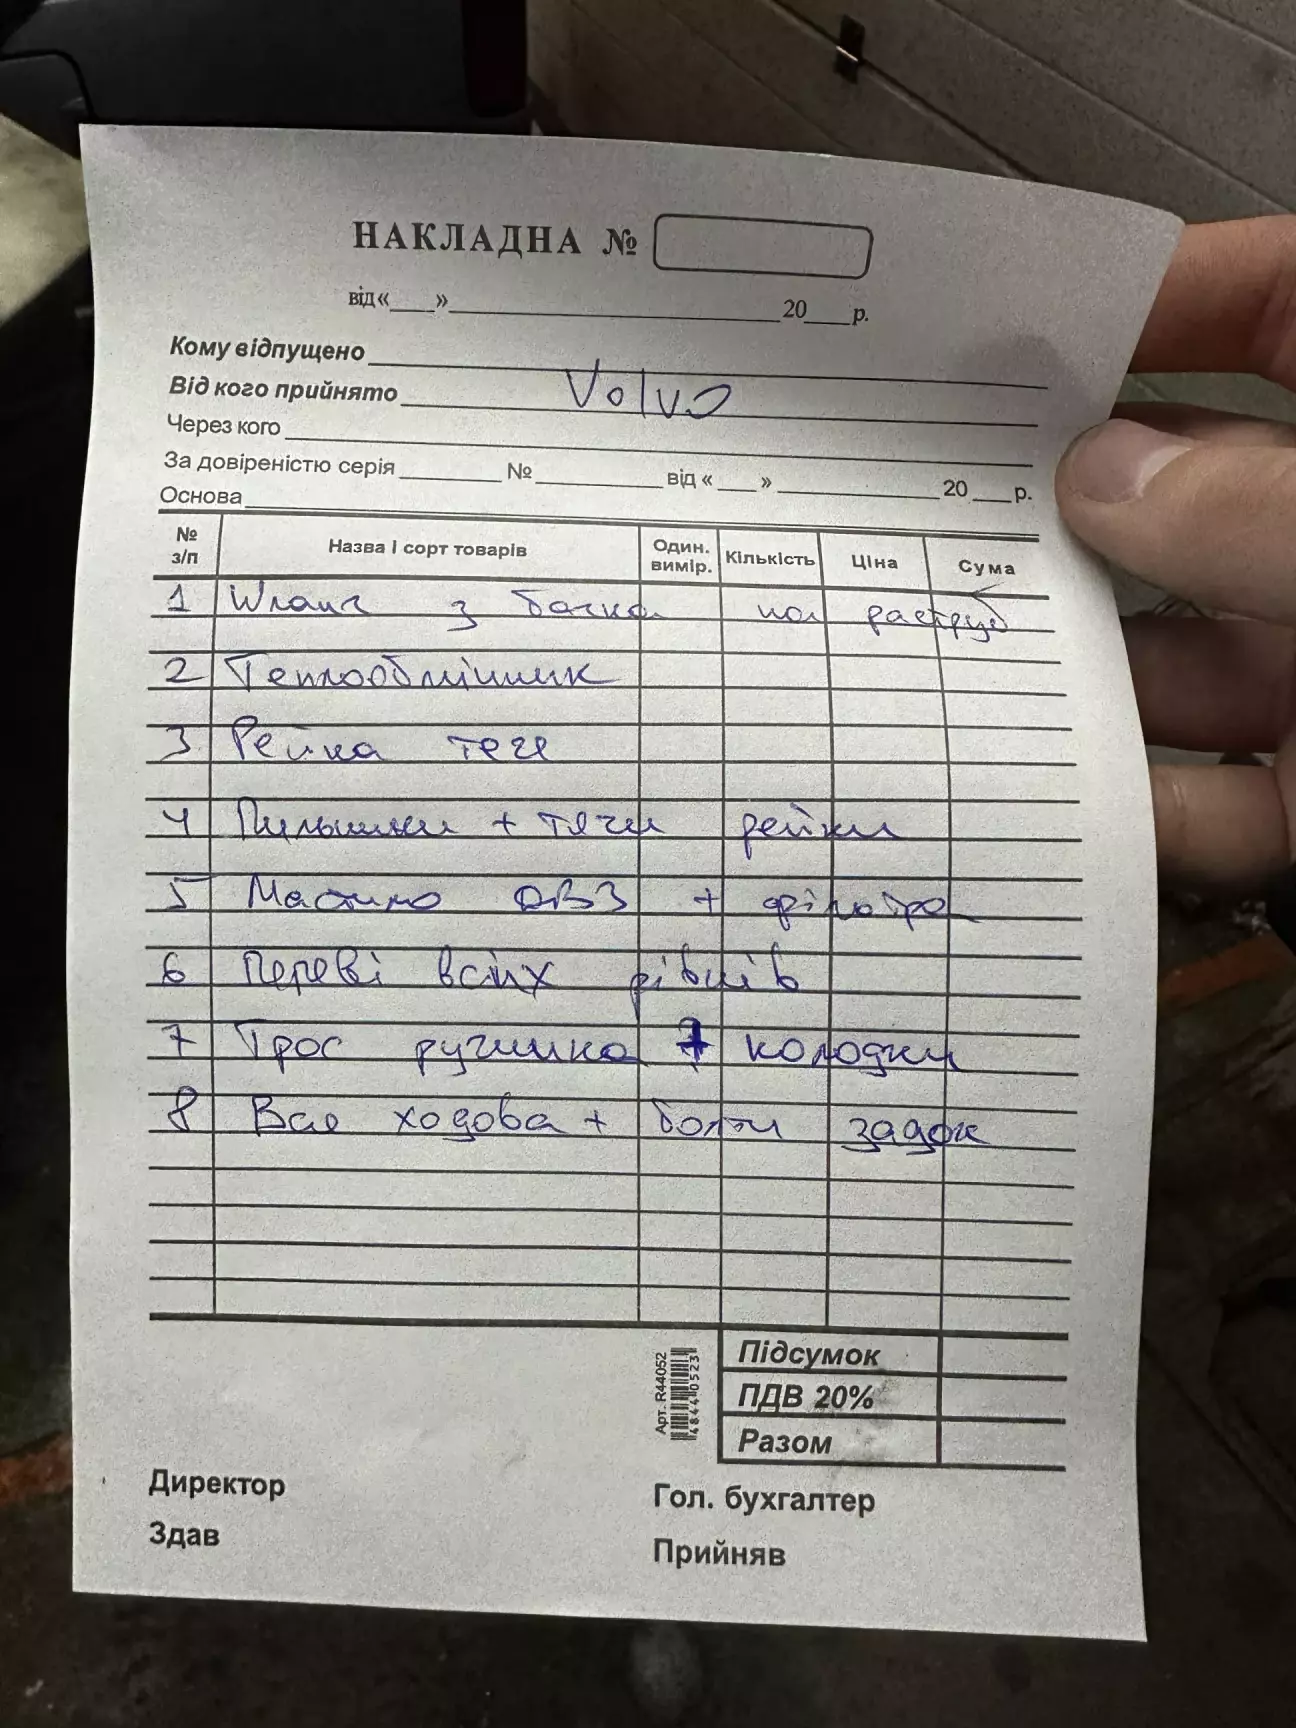 НАКЛАДНА №
від«___»____________20___р.
Кому відпущено
Від кого прийнято Volvo
Через кого
За довіреністю серія ______ № ______ від «___» ________ 20___р.
Основа
№ з/п Назва і сорт товарів Один. вимір. Кількість Ціна Сума
1 Шланг з бачка на раструб
2 Теплообмінник
3 Рейка тече
4 Пильники + тяги рейки
5 Мастило ДВЗ + фільтра
6 Переві всіх рівнів
7 Трос ручника + колодки
8 Вся ходова + болти задок
Арт. R44052
Підсумок
ПДВ 20%
Разом
Директор Гол. бухгалтер
Здав Прийняв